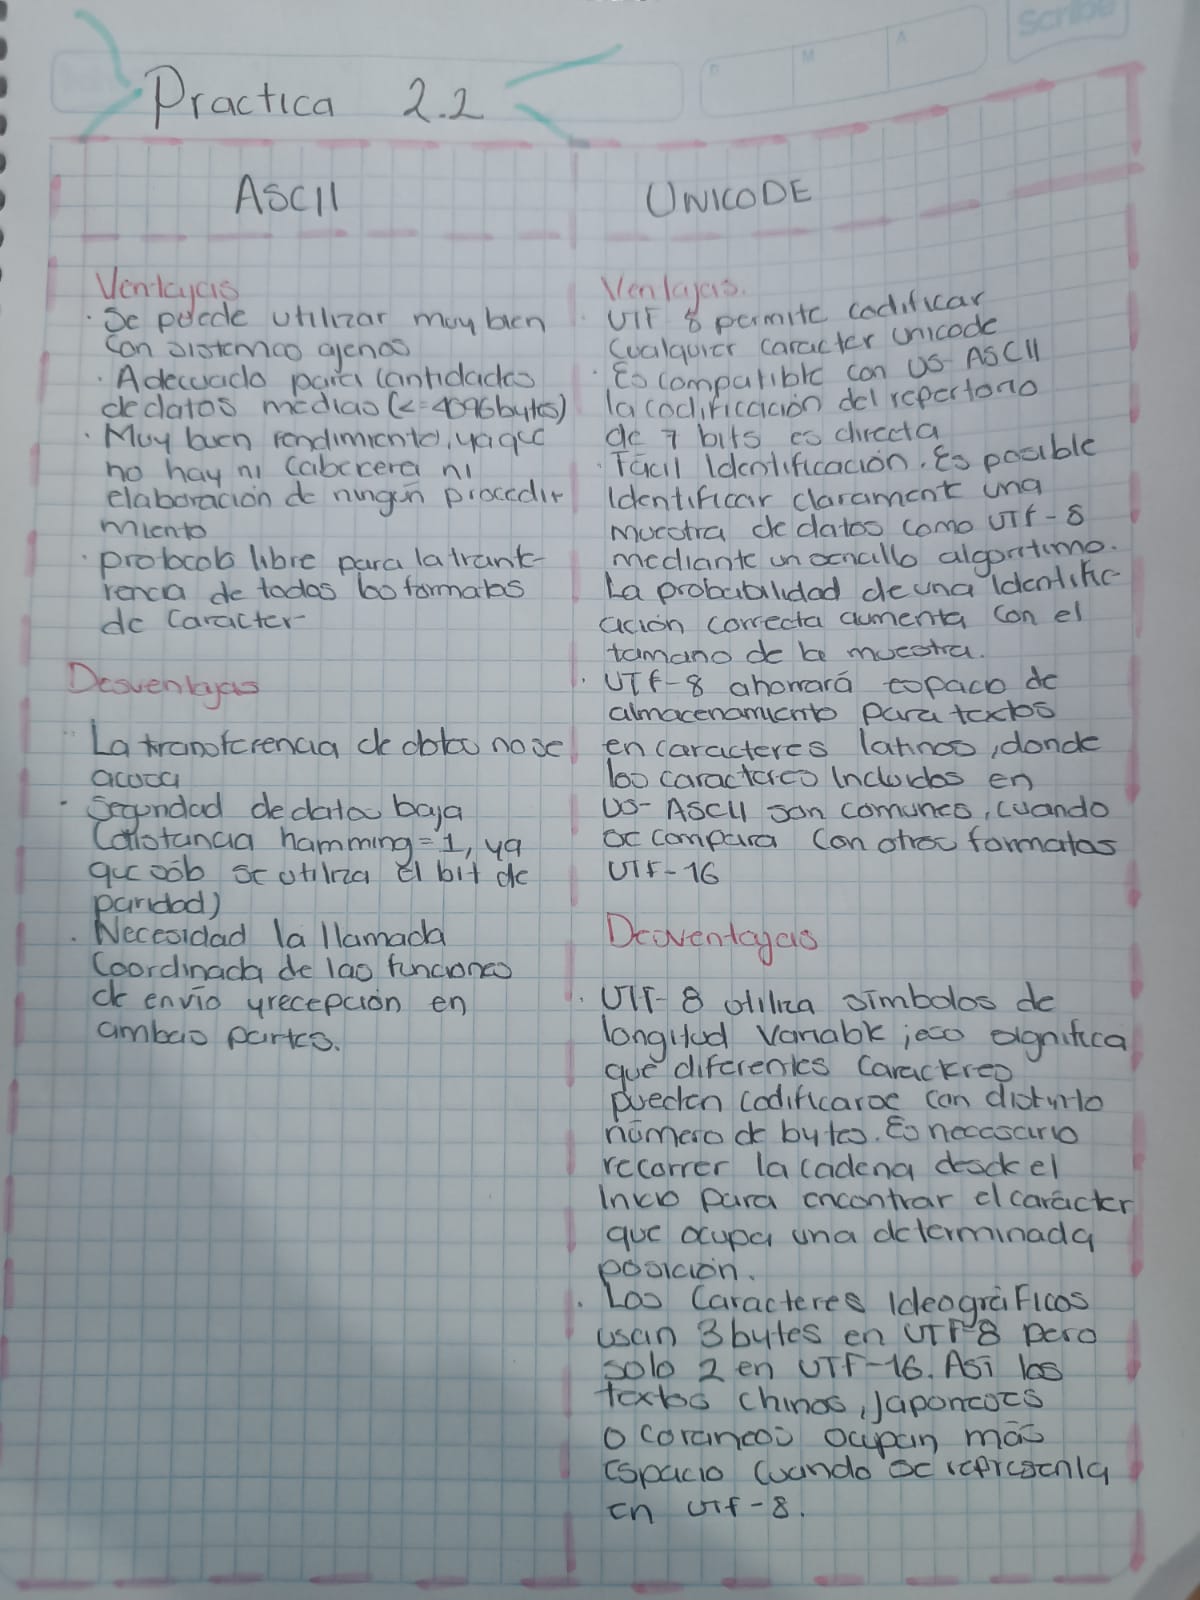 Scribe
D
M
A
Practica 2.2
ASCII
Ventajas
· Se puede utilizar muy bien
con sistemas ajenos
· Adecuado para cantidades
de datos medias (<=4096bytes)
· Muy buen rendimiento, ya que
no hay ni cabecera ni
elaboración de ningún procedi-
miento
· protocolo libre para la transfe-
rencia de todos los formatos
de caracter
Desventajas
· La transferencia de datos no se
acusa
· Seguridad de datos baja
(distancia hamming = 1, ya
que sólo se utiliza el bit de
paridad)
· Necesidad la llamada
coordinada de las funciones
de envío y recepción en
ambas partes.
UNICODE
Ventajas.
· UTF 8 permite codificar
cualquier caracter unicode
· Es compatible con US-ASCII
la codificación del repertorio
de 7 bits es directa
· Fácil Identificación. Es posible
Identificar clarament una
muestra de datos como UTF-8
mediante un sencillo algoritimo.
La probabilidad de una Identific-
ación correcta aumenta con el
tamano de la muestra.
· UTF-8 ahorrará espacio de
almacenamiento para textos
en caracteres latinos, donde
los caracteres Incluidos en
US-ASCII son comunes, cuando
se compara con otros formatos
UTF-16
Desventajas
· UTF-8 utiliza símbolos de
longitud Variable; eso significa
que diferentes caracteres
pueden codificarse con distinto
número de bytes. Es necesario
recorrer la cadena desde el
Inicio para encontrar el carácter
que ocupa una determinada
posición.
· Los Caracteres Ideográficos
usan 3 bytes en UTF-8 pero
solo 2 en UTF-16. Así los
textos chinos, japoneses
o coreanos ocupan más
espacio cuando se representa
en UTF-8.